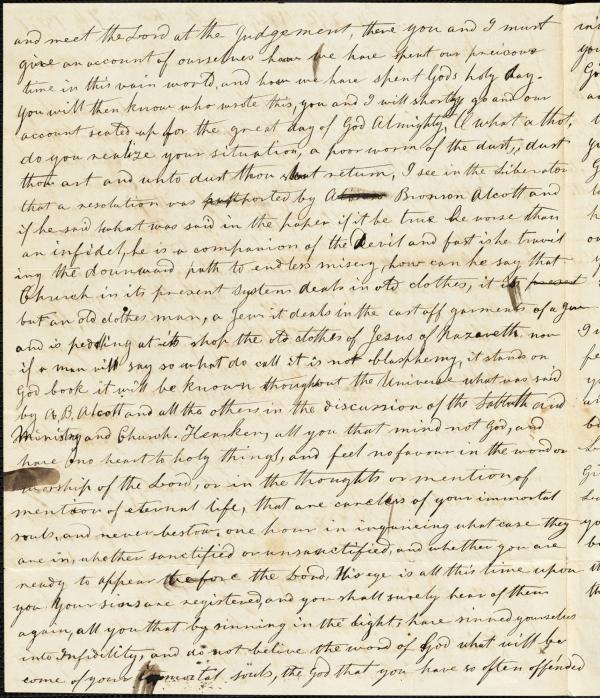 and meet the Lord at the Judgement, there you and I must
give an account of ourselves how we have spent our precious
time in this vain world, and how we have spent Gods holy day.
You will then know who wrote this, you and I will shortly go and our
account sealed up for the great day of God Almighty, O what a thot,
do you realize your situation, a poor worm of the dust, dust
thou art and unto dust thou shalt return, I see in the Liberator
that a resolution was supported by A Bronson Alcott and
if he said what was said in the paper if it be true he worse than
an infidel, he is a companion of the Devil and fast is he travil
ing the downward path to endless misery, how can he say, that
Church in its present System deals in old clothes, it is
but an old clothes man, a Jew it deals in the cast off garments of a Jew
and is pedling at its shop the old clothes of Jesus of Nazareth now
if a man will say so what do call it is not blasphemy, it stands on
God book it will be known thoughout the Universe what was said
by A, B, Alcott and all the others in the discussion of the Sabbath and
Ministry and Church. Hearken, all you that mind not God, and
have no heart to holy things, and feel no favour in the word or
worship of the Lord, or in the thoughts or mention of
mention of eternal life, that are careless of your immortal
souls, and never bestow, one hour in inquireing what case they
are in, whether sanctified or unsanctified, and whether you are
ready to appear before the Lord, His eye is all this time upon
you Your sins are registered, and you shall surely hear of them
again, all you that by sinning in the light, have sinned yourselves
into Infidility, and do not belive the word of God what will be
come of your immortal souls, the God that you have so often offended